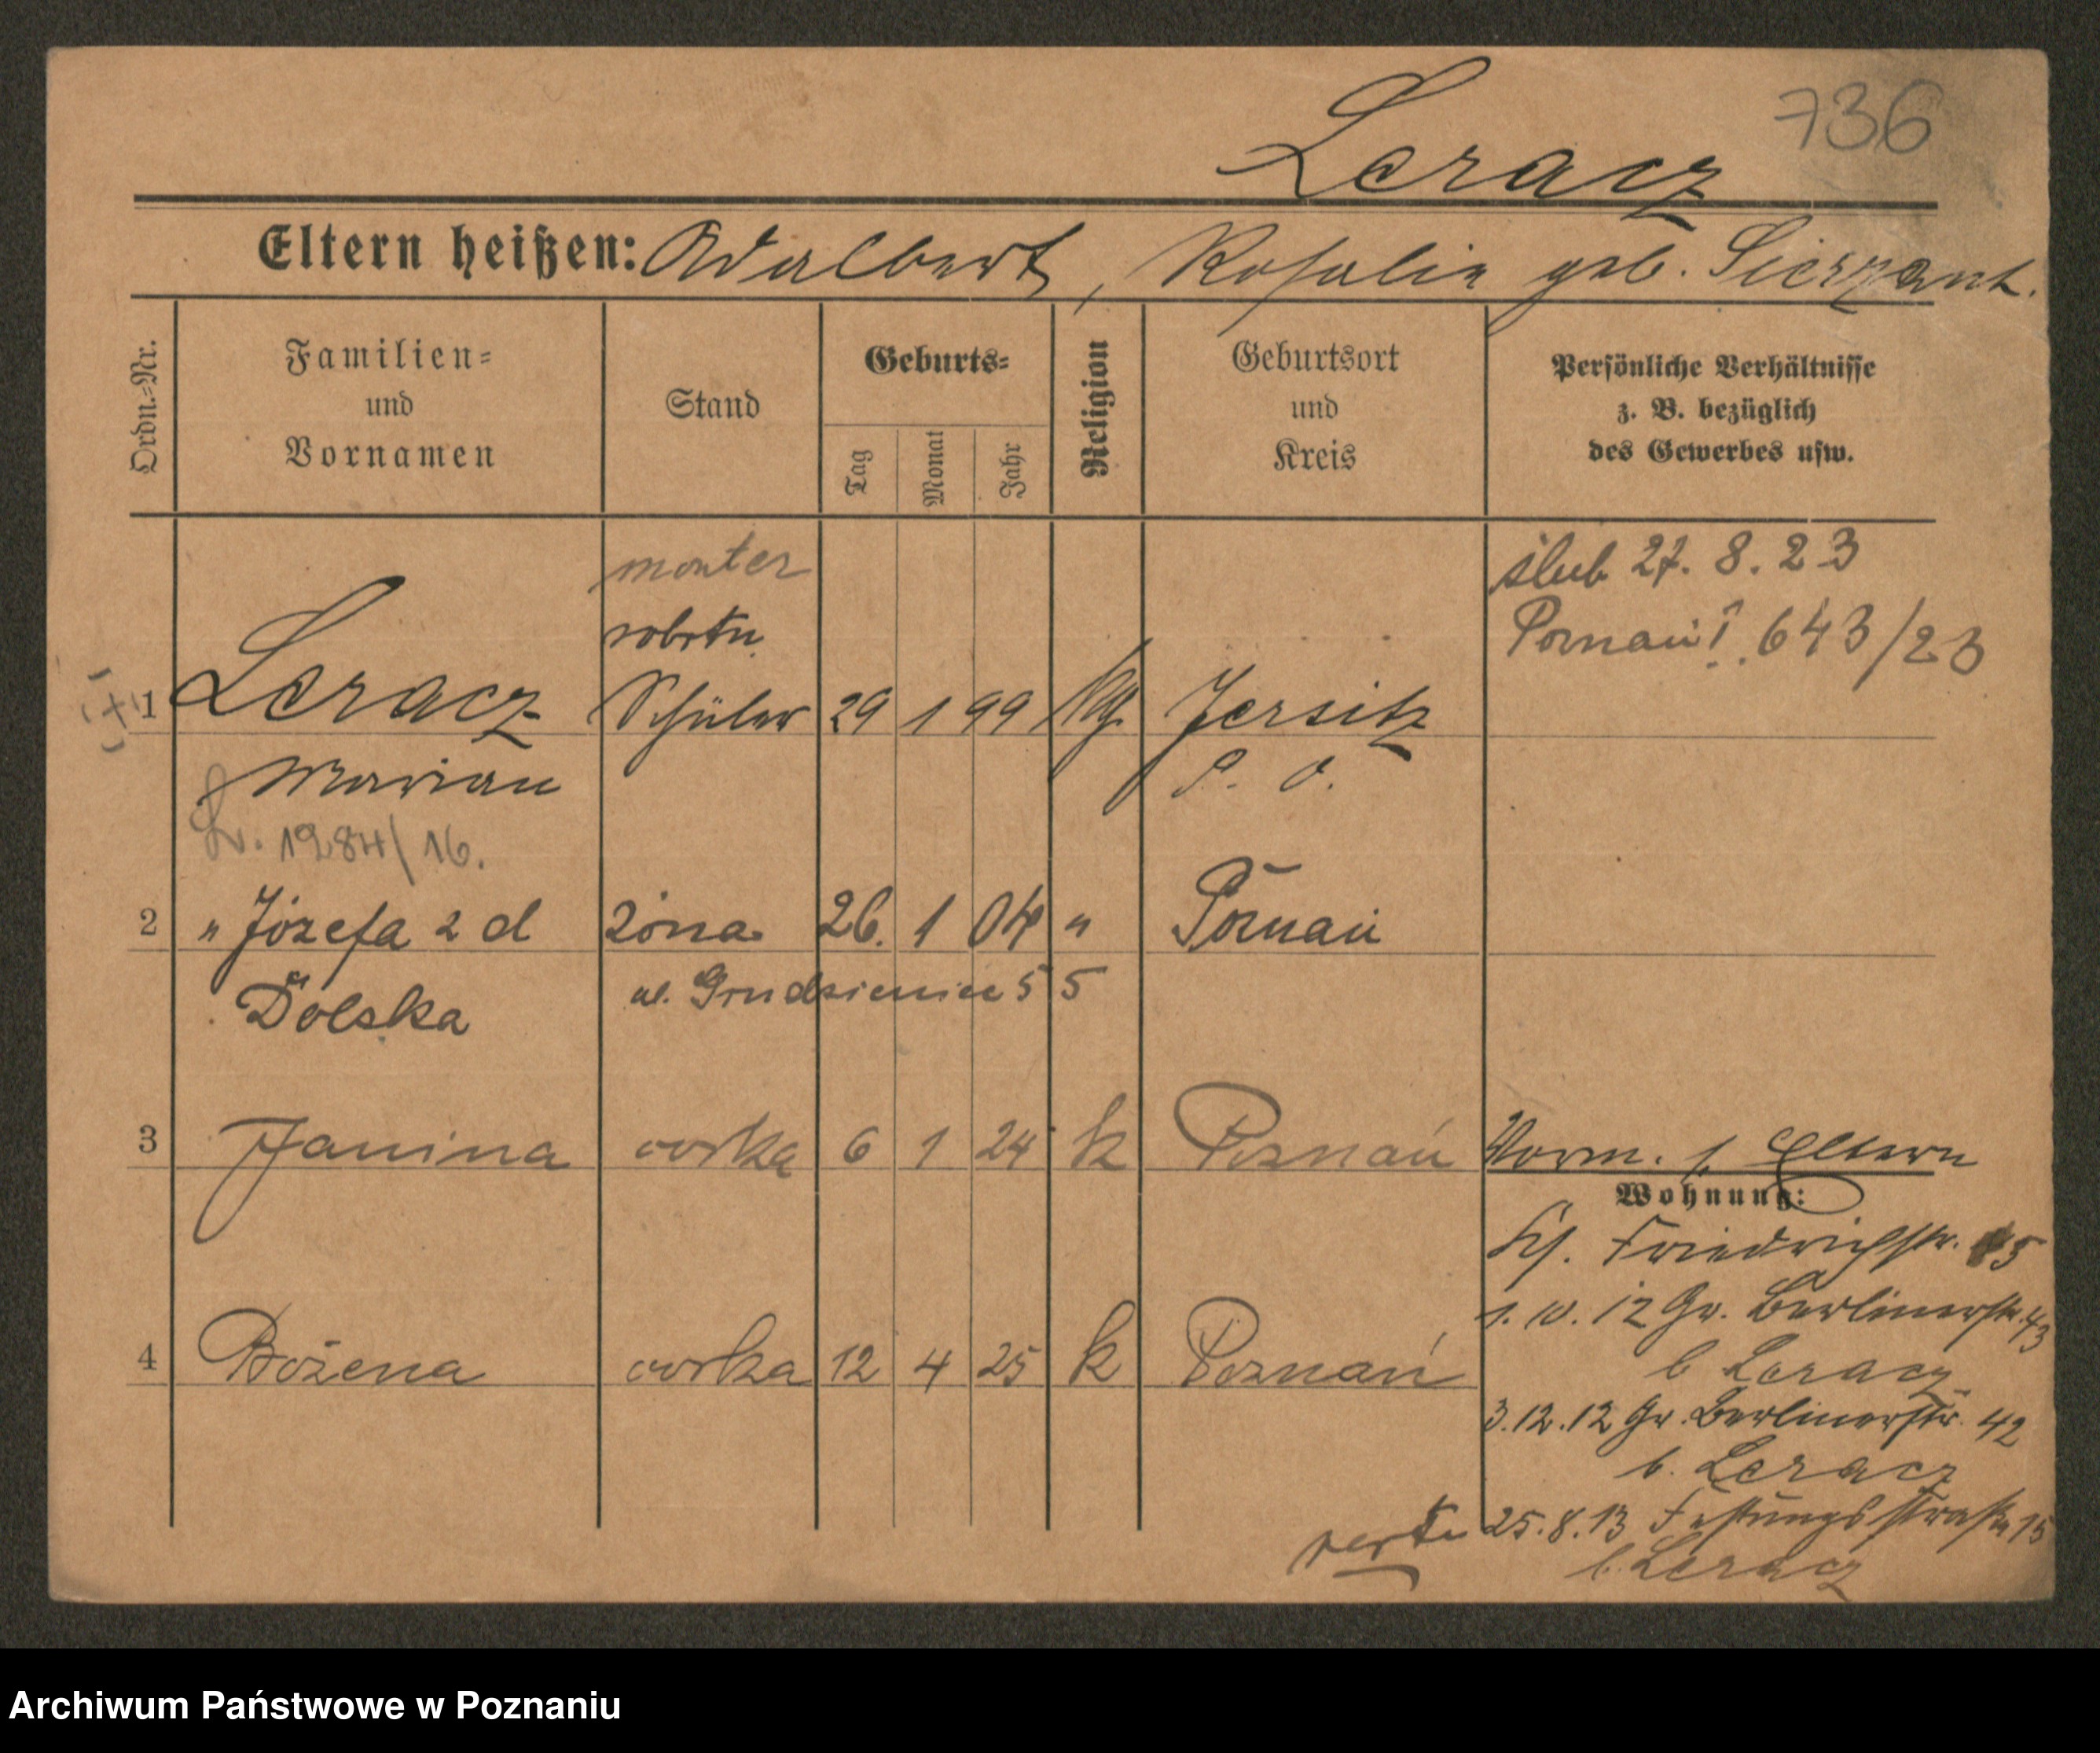 736
Leracz
Eltern heißen: Adalbert, Rosalie geb. Sierzant.
Ordn.-Nr.
Familien-
und
Vornamen
Stand
Geburts-
Tag
Monat
Jahr
Religion
Geburtsort
und
Kreis
Persönliche Verhältnisse
z. B. bezüglich
des Gewerbes usw.
monter
robotn.
ślub 27. 8. 23
Poznań I. 643/23
1 Leracz Schüler 29 1 99 Jersitz
Marian P. O.
1984/16.
2 " Józefa 2 d żona 26. 1 04 " Poznań
Dolska ul. Grudzieniec 55
3 Janina córka 6 1 24 k Poznań
4 Bożena córka 12 4 25 k Poznań
Vorm. b. Eltern
Wohnung:
Friedrichstr. 5
1. 10. 12 Gr. Berlinerstr. 43
b Leracz
3.12.12 Gr. Berlinerstr. 42
b. Leracz
verte 25.8.13 Festungsstraße 15
b. Leracz
Archiwum Państwowe w Poznaniu